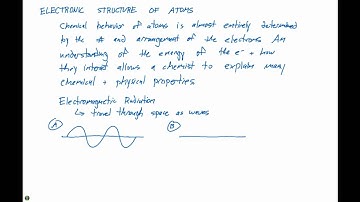 ELECTRONIC STRUCTURE OF ATOMS
Chemical behavior of atoms is almost entirely determined
by the # and arrangement of the electrons. An
understanding of the energy of the e⁻ + how
they interact allows a chemist to explain many
chemical + physical properties.
Electromagnetic Radiation
↳ travel through space as waves
A B